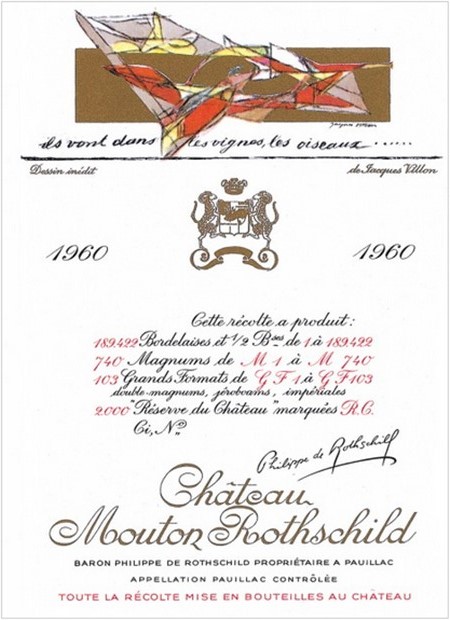 Jacques Villon
ils vont dans les vignes, les oiseaux ......
Dessin inédit de Jacques Villon
1960 1960
Cette récolte a produit :
189.422 Bordelaises et 1/2 Bses de 1 à 189.422
740 Magnums de M 1 à M 740
103 Grands Formats de G F 1 à G F 103
double-magnums, jéroboams, impériales
2000 "Réserve du Château" marquées R.C.
Ci, No
Philippe de Rothschild
Château
Mouton Rothschild
BARON PHILIPPE DE ROTHSCHILD PROPRIÉTAIRE A PAUILLAC
APPELLATION PAUILLAC CONTRÔLÉE
TOUTE LA RÉCOLTE MISE EN BOUTEILLES AU CHÂTEAU